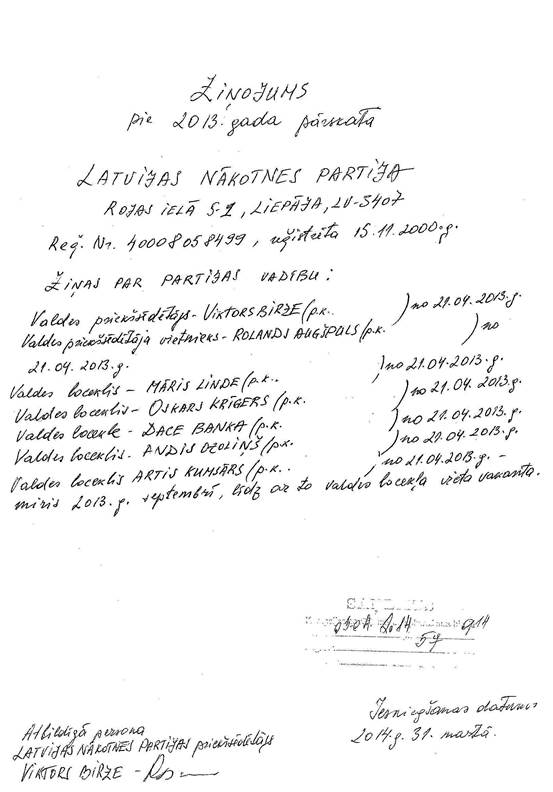 ZIŅOJUMS
pie 2013. gada pārskata
LATVIJAS NĀKOTNES PARTIJA
ROJAS IELĀ 8-1, LIEPĀJA, LV-3407
Reģ. Nr. 40008058499, reģistrēta 15.11.2000.g.
ZIŅAS PAR PARTIJAS VADĪBU:
Valdes priekšsēdētājs - VIKTORS BIRZE (p.k. ) no 21.04.2013.g.
Valdes priekšsēdētāja vietnieks - ROLANDS AUGŠPULS (p.k. ) no
21.04.2013.g.
Valdes loceklis - MĀRIS LINDE (p.k.. ) no 21.04.2013.g.
Valdes loceklis - OSKARS KRĪGERS (p.k. ) no 21.04.2013.g.
Valdes locekle - DACE BANKA (p.k. ) no 21.04.2013.g.
Valdes loceklis - ANDIS OZOLIŅŠ (p.k. ) no 21.04.2013.g.
Valdes loceklis ARTIS KUMSĀRS (p.k. . ) no 21.04.2013.g. -
miris 2013.g. septembrī, līdz ar to valdes locekļa vieta vakanta.
SAŅEMTS
2014
57
Iesniegšanas datums
2014.g. 31. martā.
Atbildīgā persona
LATVIJAS NĀKOTNES PARTIJAS priekšsēdētājs
VIKTORS BIRZE -